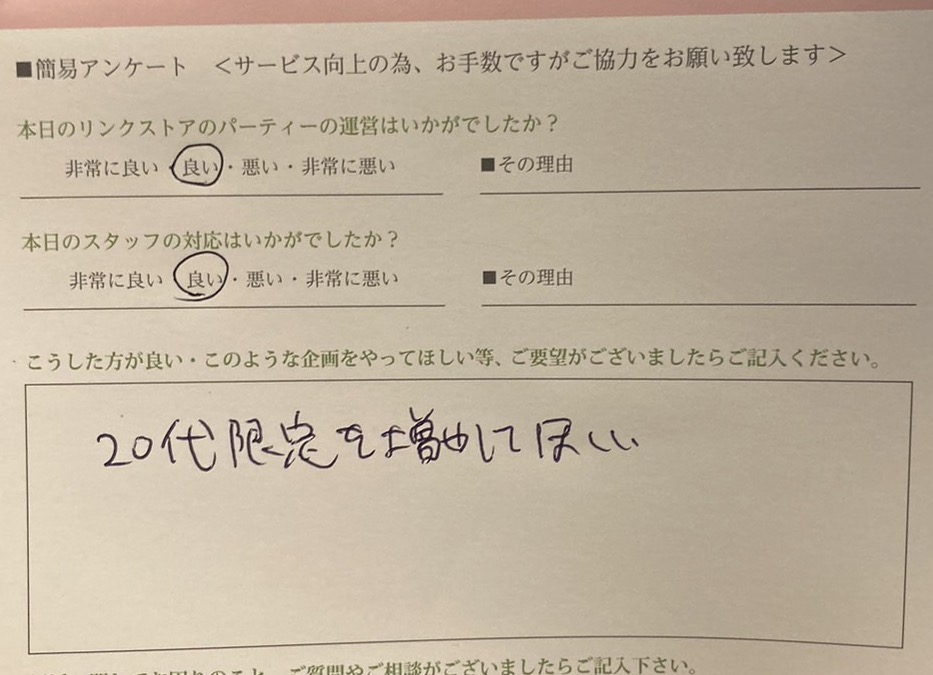 ■簡易アンケート ＜サービス向上の為、お手数ですがご協力をお願い致します＞
本日のリンクストアのパーティーの運営はいかがでしたか？
非常に良い・良い・悪い・非常に悪い ■その理由
本日のスタッフの対応はいかがでしたか？
非常に良い 良い・悪い・非常に悪い ■その理由
こうした方が良い・このような企画をやってほしい等、ご要望がございましたらご記入ください。
20代限定を増やしてほしい
ご質問やご相談がございましたらご記入下さい。